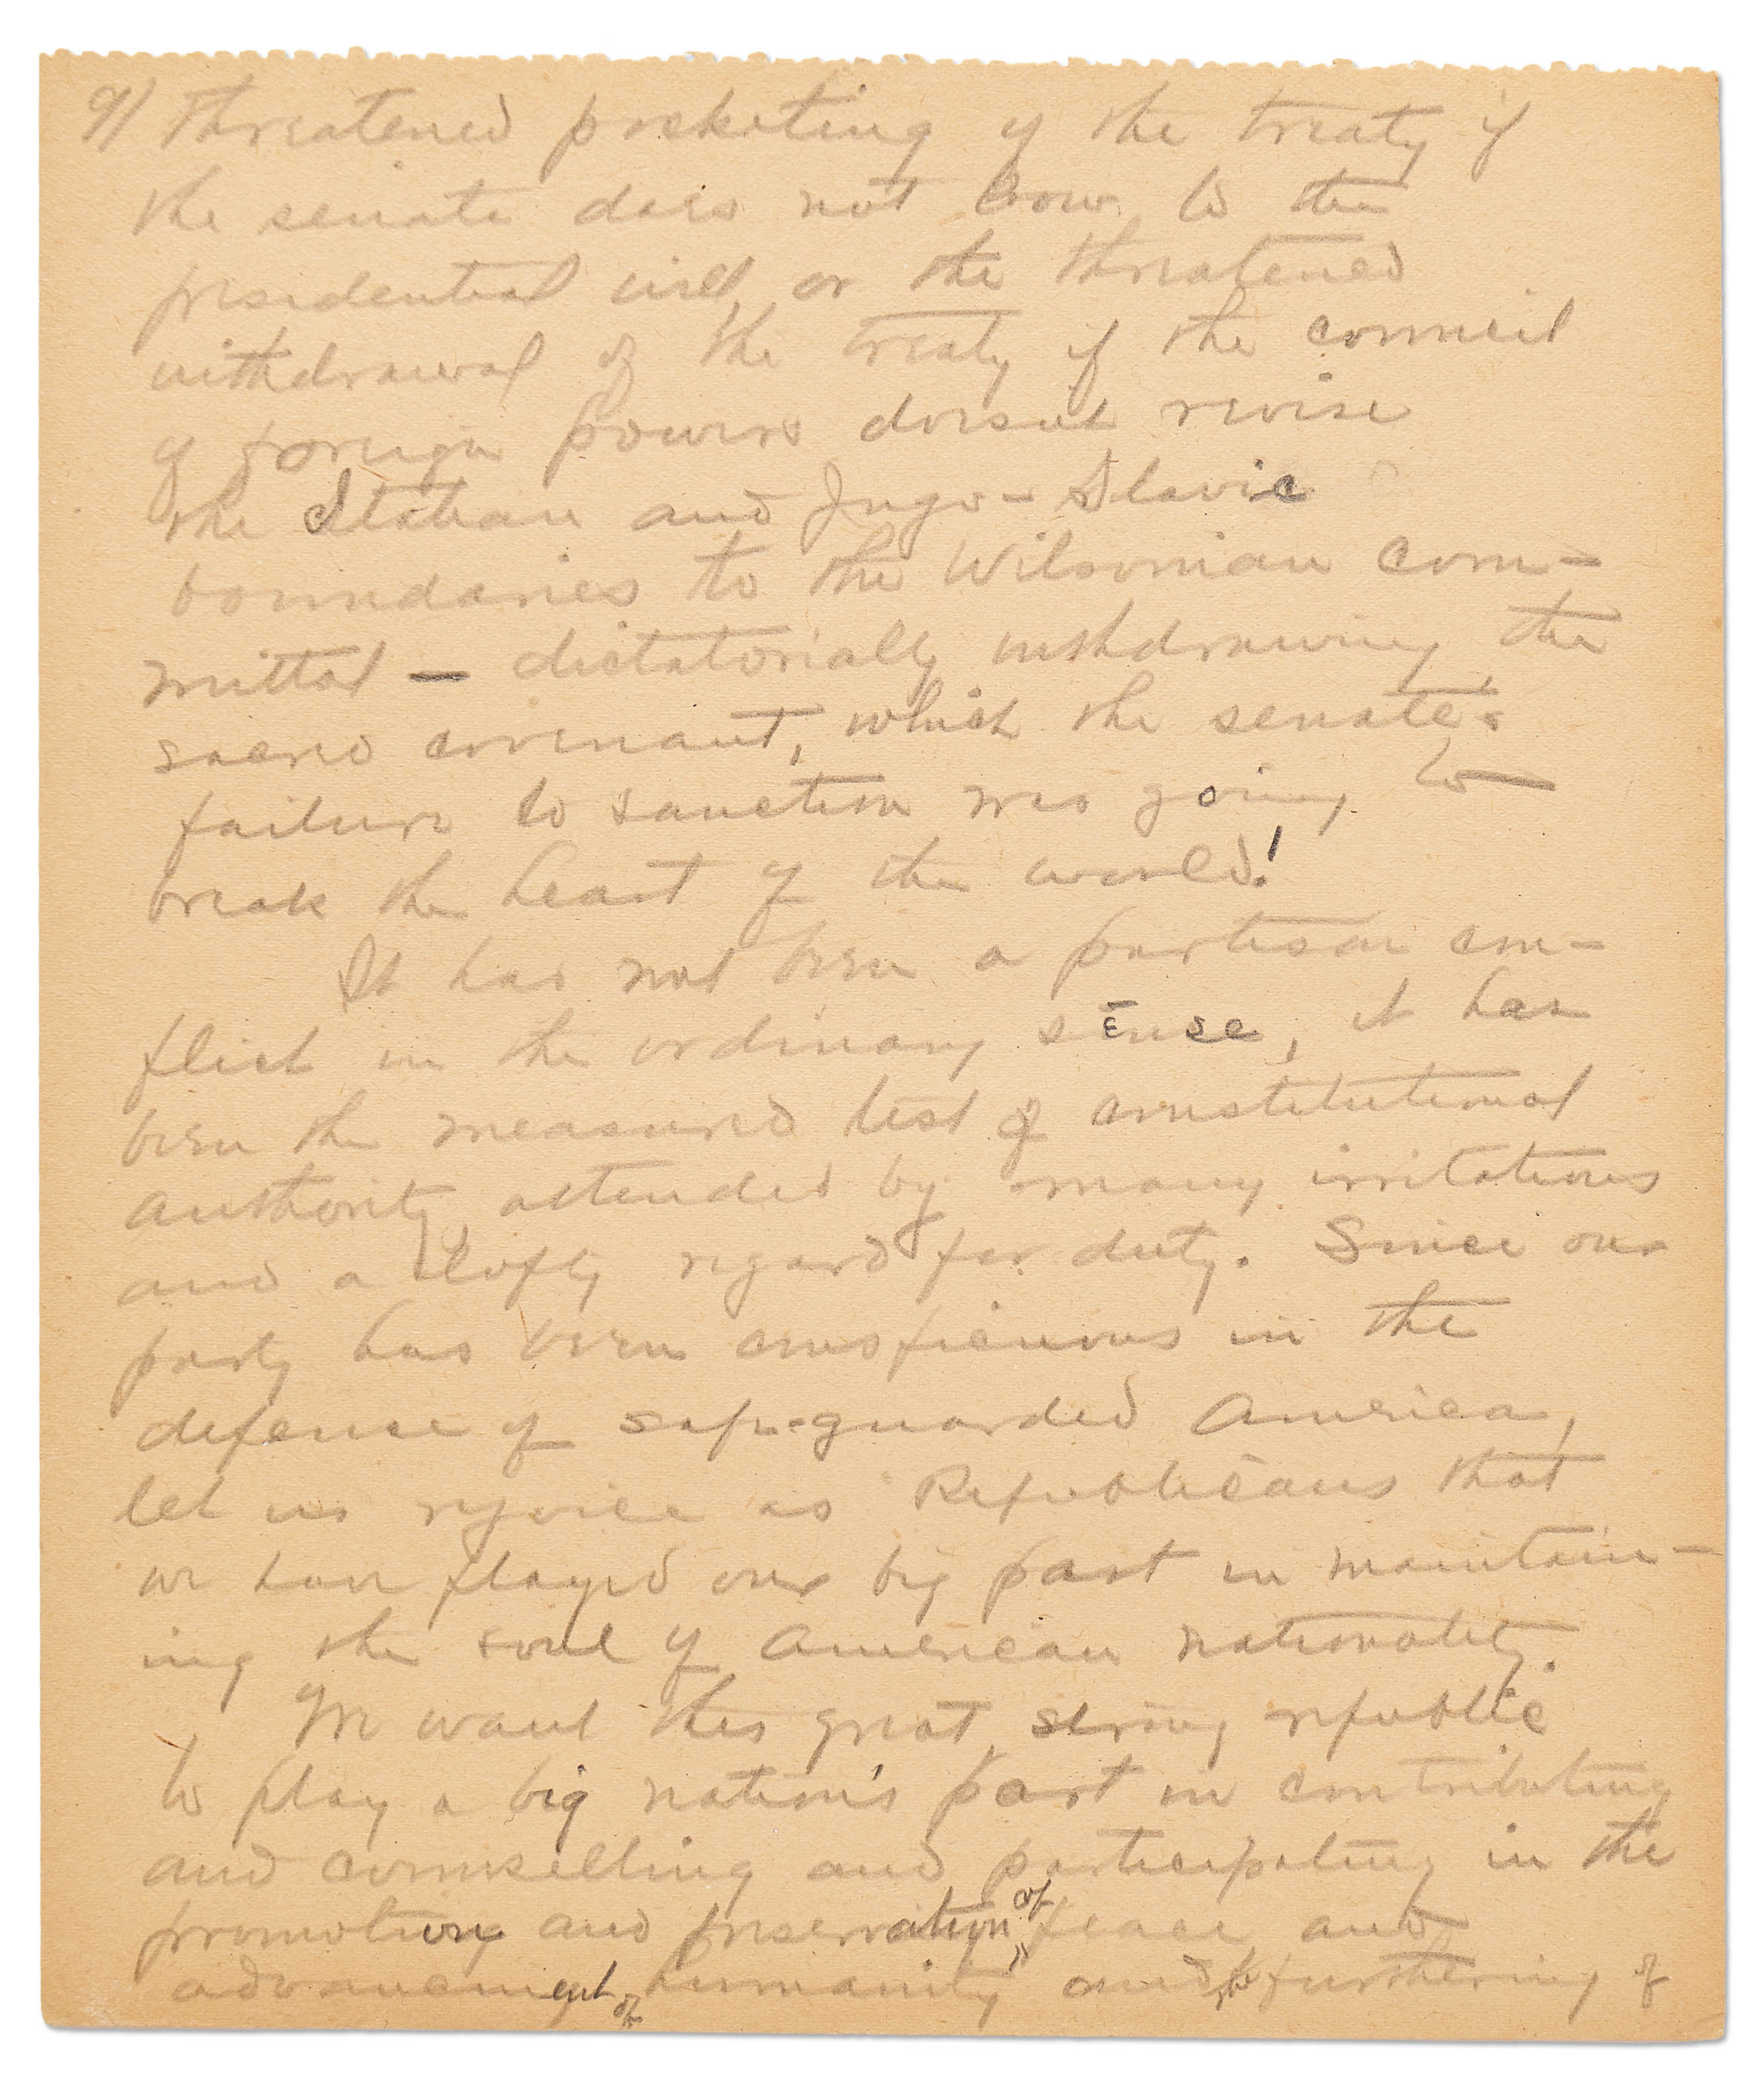 9/ Threatened pocketing of the treaty if
the senate does not bow to the
presidential will, or the threatened
withdrawal of the treaty if the council
of foreign powers doesnt revise
the Italian and Jugo-Slavic
boundaries to the Wilsonian com-
mittal — dictatorially withdrawing the
sacred covenant, which the senate's
failure to sanction was going to
break the heart of the world!
It has not been a partisan con-
flict in the ordinary sense, it has
been the measured test of constitutional
authority, attended by many irritations
and a lofty regard for duty. Since our
party has been conspicuous in the
defense of safe-guarded America,
let us rejoice as Republicans that
we have played our big part in maintain-
ing the soul of American nationality.
We want this great, strong republic
to play a big nation's part in contributing
and counselling and participating in the
promotion and preservation of peace and
advancement of humanity and furthering of